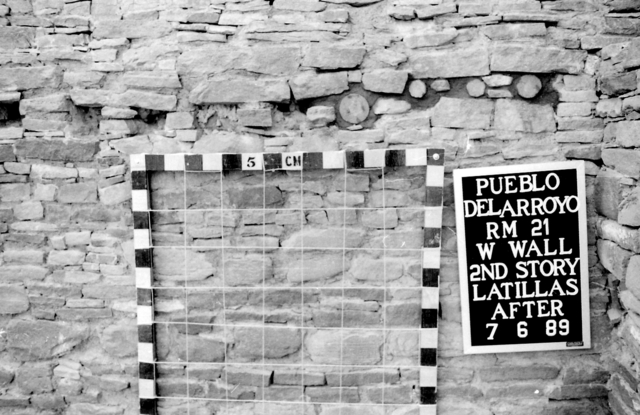 5 CM
PUEBLO
DELARROYO
RM 21
W WALL
2ND STORY
LATILLAS
AFTER
7 6 89